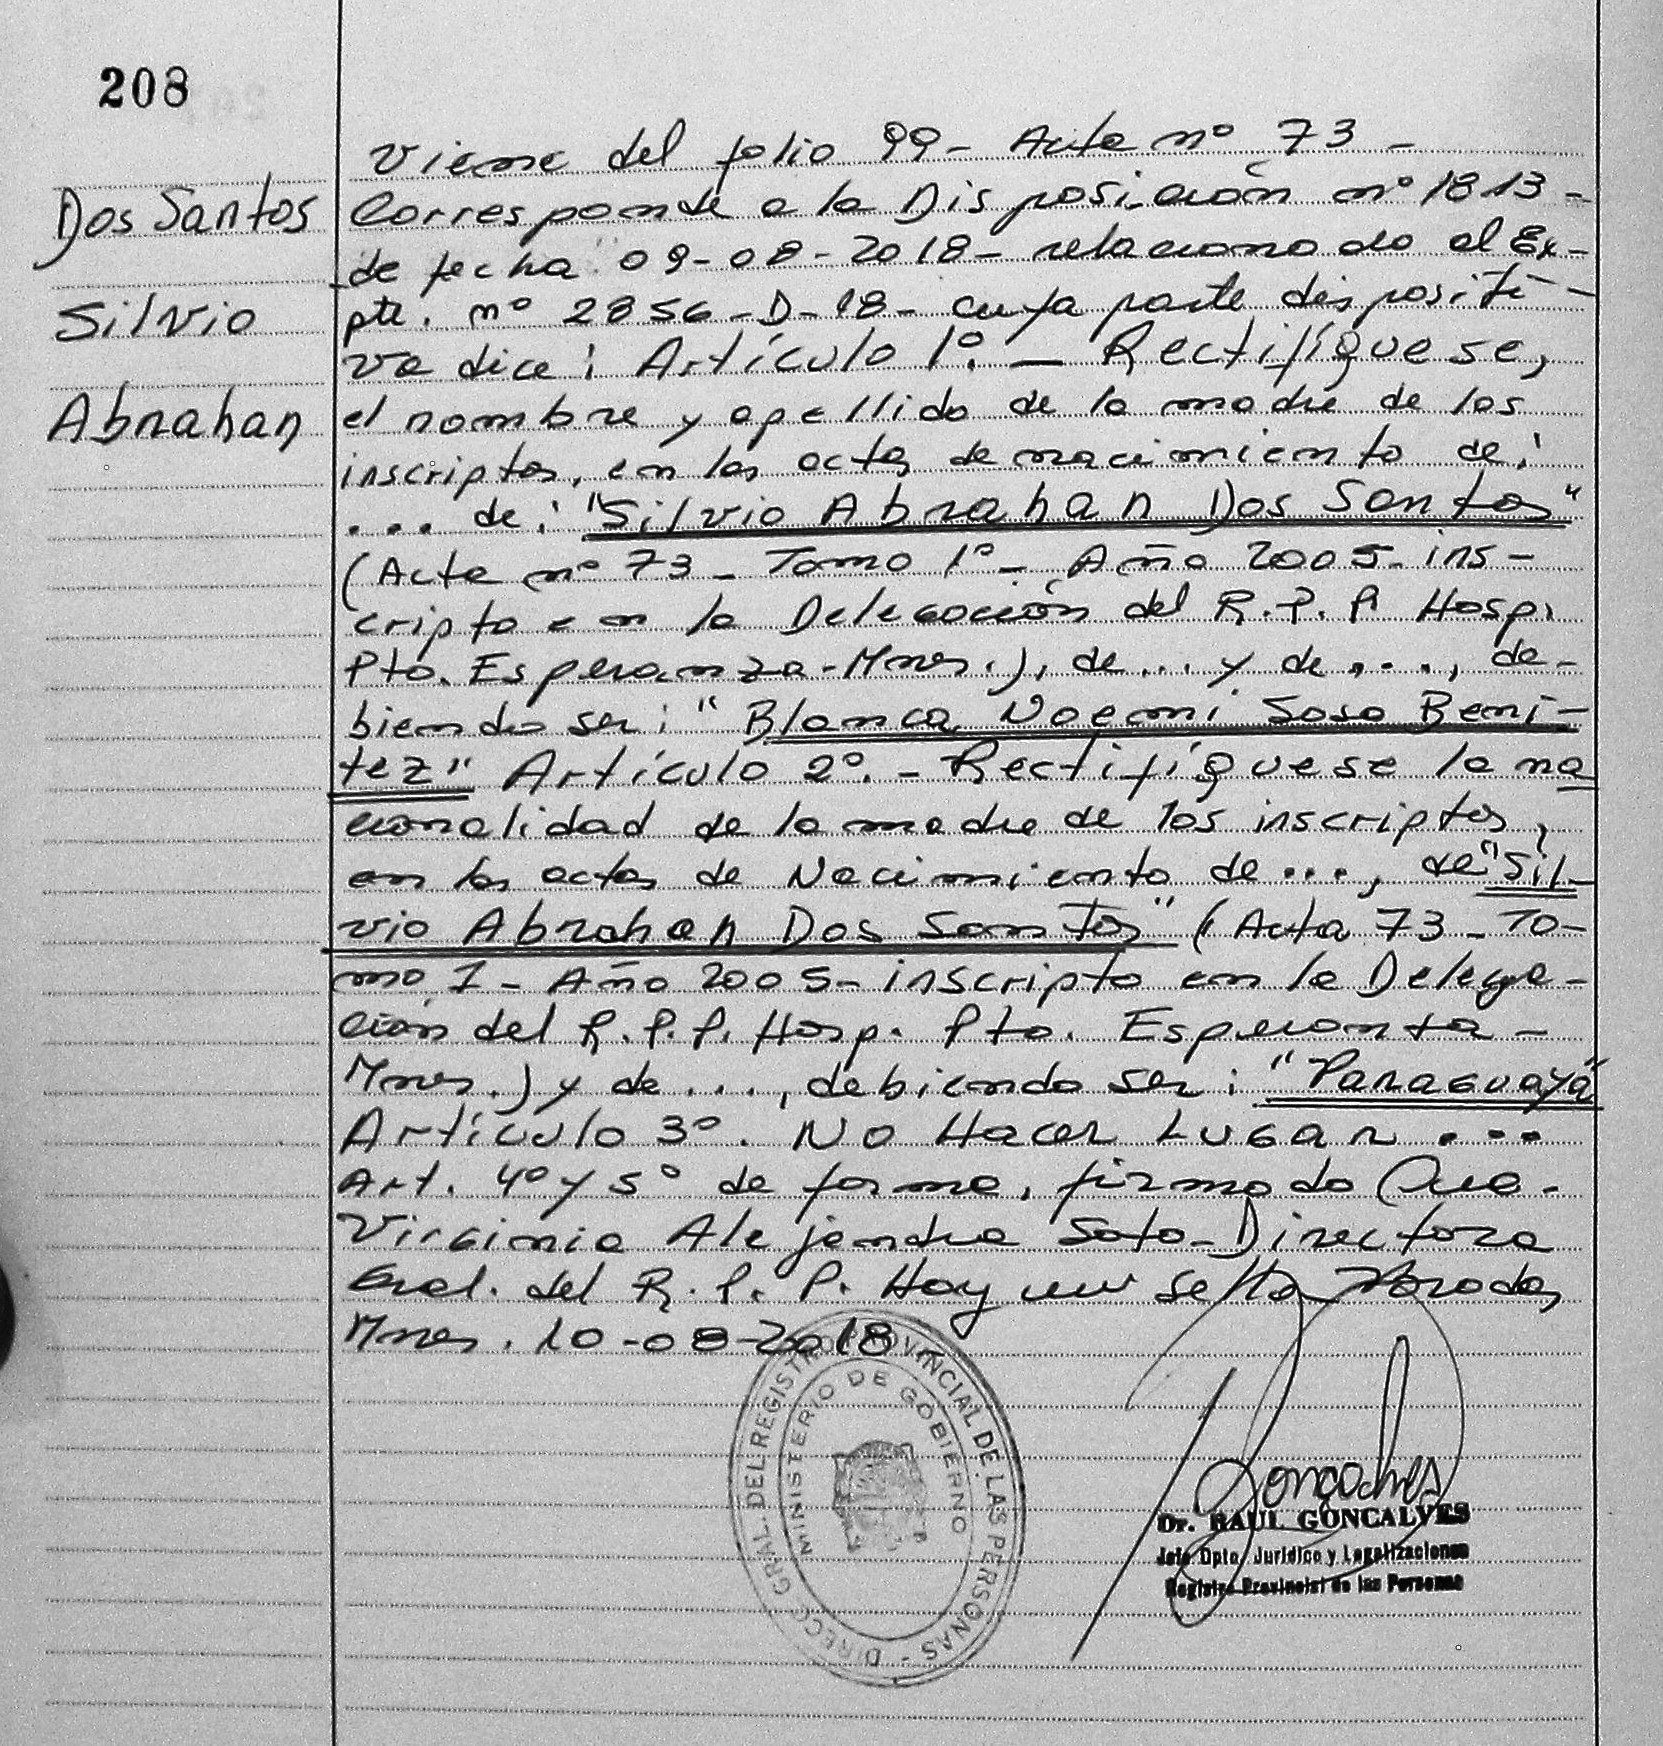 208
Dos Santos
Silvio
Abrahan
Viene del folio 99- Acta nº 73 -
Corresponde a la Disposición nº 1813 -
de fecha 09-08-2018- relacionado al Ex-
pte. nº 2856-D-18- cuya parte dispositi-
va dice: Artículo 1º. - Rectifíquese,
el nombre y apellido de la madre de los
inscriptos, en las actas de nacimiento de:
... de: "Silvio Abrahan Dos Santos"
(Acta nº 73 - Tomo 1º - Año 2005- ins-
cripto en la Delegación del R.P.P Hosp.
Pto. Esperanza-Mnes.), de ... y de ..., de-
biendo ser: "Blanca Noemi Sosa Beni-
tez" Artículo 2º. - Rectifíquese la na
cionalidad de la madre de los inscriptos,
en las actas de Nacimiento de ..., de "Sil-
vio Abrahan Dos Santos" (Acta 73 - To-
mo I - Año 2005- inscripto en la Delega-
ción del R.P.P. Hosp. Pto. Esperanza -
Mnes.) y de ..., debiendo ser: "Paraguaya"
Artículo 3º. No Hacer Lugar ...
Art. 4º y 5º de forma, firmado
Virginia Alejandra Soto-Directora
Gral. del R.P.P. Hay un sello Posadas,
Mnes. 10-08-2018
DIRECC. GRAL. DEL REGISTRO PROVINCIAL DE LAS PERSONAS -
MINISTERIO DE GOBIERNO
Dr. RAUL GONCALVES
Jefe Dpto. Jurídico y Legalizaciones
Registro Provincial de las Personas